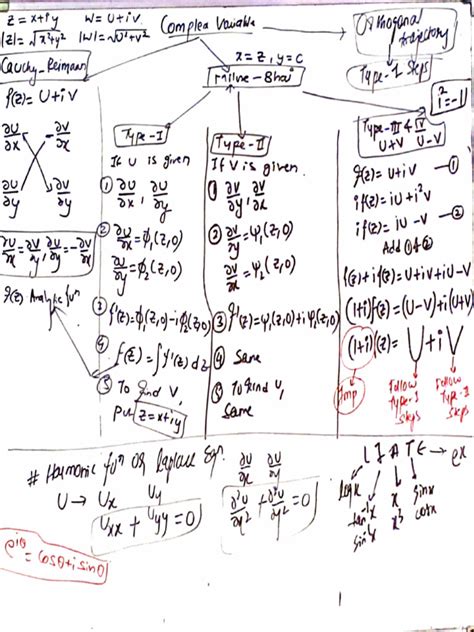 z = x+iy   w = u+iv   Complex Variable
|z| = √x²+y²   |w| = √u²+v²
Orthogonal
trajectory
Type-1 Steps
Cauchy-Reimann
x = z, y = 0
Milne-
i² = -1
f(z) = U+iV
∂U/∂x   ∂V/∂x
∂U/∂y   ∂V/∂y
∂U/∂x = ∂V/∂y, ∂U/∂y = -∂V/∂x
f(z) Analytic fuⁿ
Type-I
If U is given
① ∂U/∂x, ∂U/∂y
② ∂U/∂x = ϕ₁(z,0)
∂U/∂y = ϕ₂(z,0)
③ f'(z) = ϕ₁(z,0) - iϕ₂(z,0)
④ f(z) = ∫f'(z) dz
⑤ To find V,
Put z = x+iy
Type-II
If V is given
① ∂V/∂y, ∂V/∂x
② ∂V/∂y = ψ₁(z,0)
∂V/∂x = ψ₂(z,0)
③ f'(z) = ψ₁(z,0) + iψ₂(z,0)
④ Same
⑤ To find U,
Same
Type-III & IV
U+V   U-V
f(z) = U+iV —①
if(z) = iU + i²V
if(z) = iU - V —②
Add ① & ②
f(z)+if(z) = U+iV+iU-V
(1+i)f(z) = (U-V)+i(U+V)
(1+i)f(z) = U+iV
Imp
Follow Type-I Steps
Follow Type-II Steps
# Harmonic fuⁿ OR Laplace Eqn.
∂U/∂x   ∂U/∂y
U → Ux   Uy
Uxx + Uyy = 0
∂²U/∂x² + ∂²U/∂y² = 0
L I A T E → eˣ
logx
tan⁻¹x
sin⁻¹x
x
x³
sinx
cosx
e^iθ = cosθ+isinθ